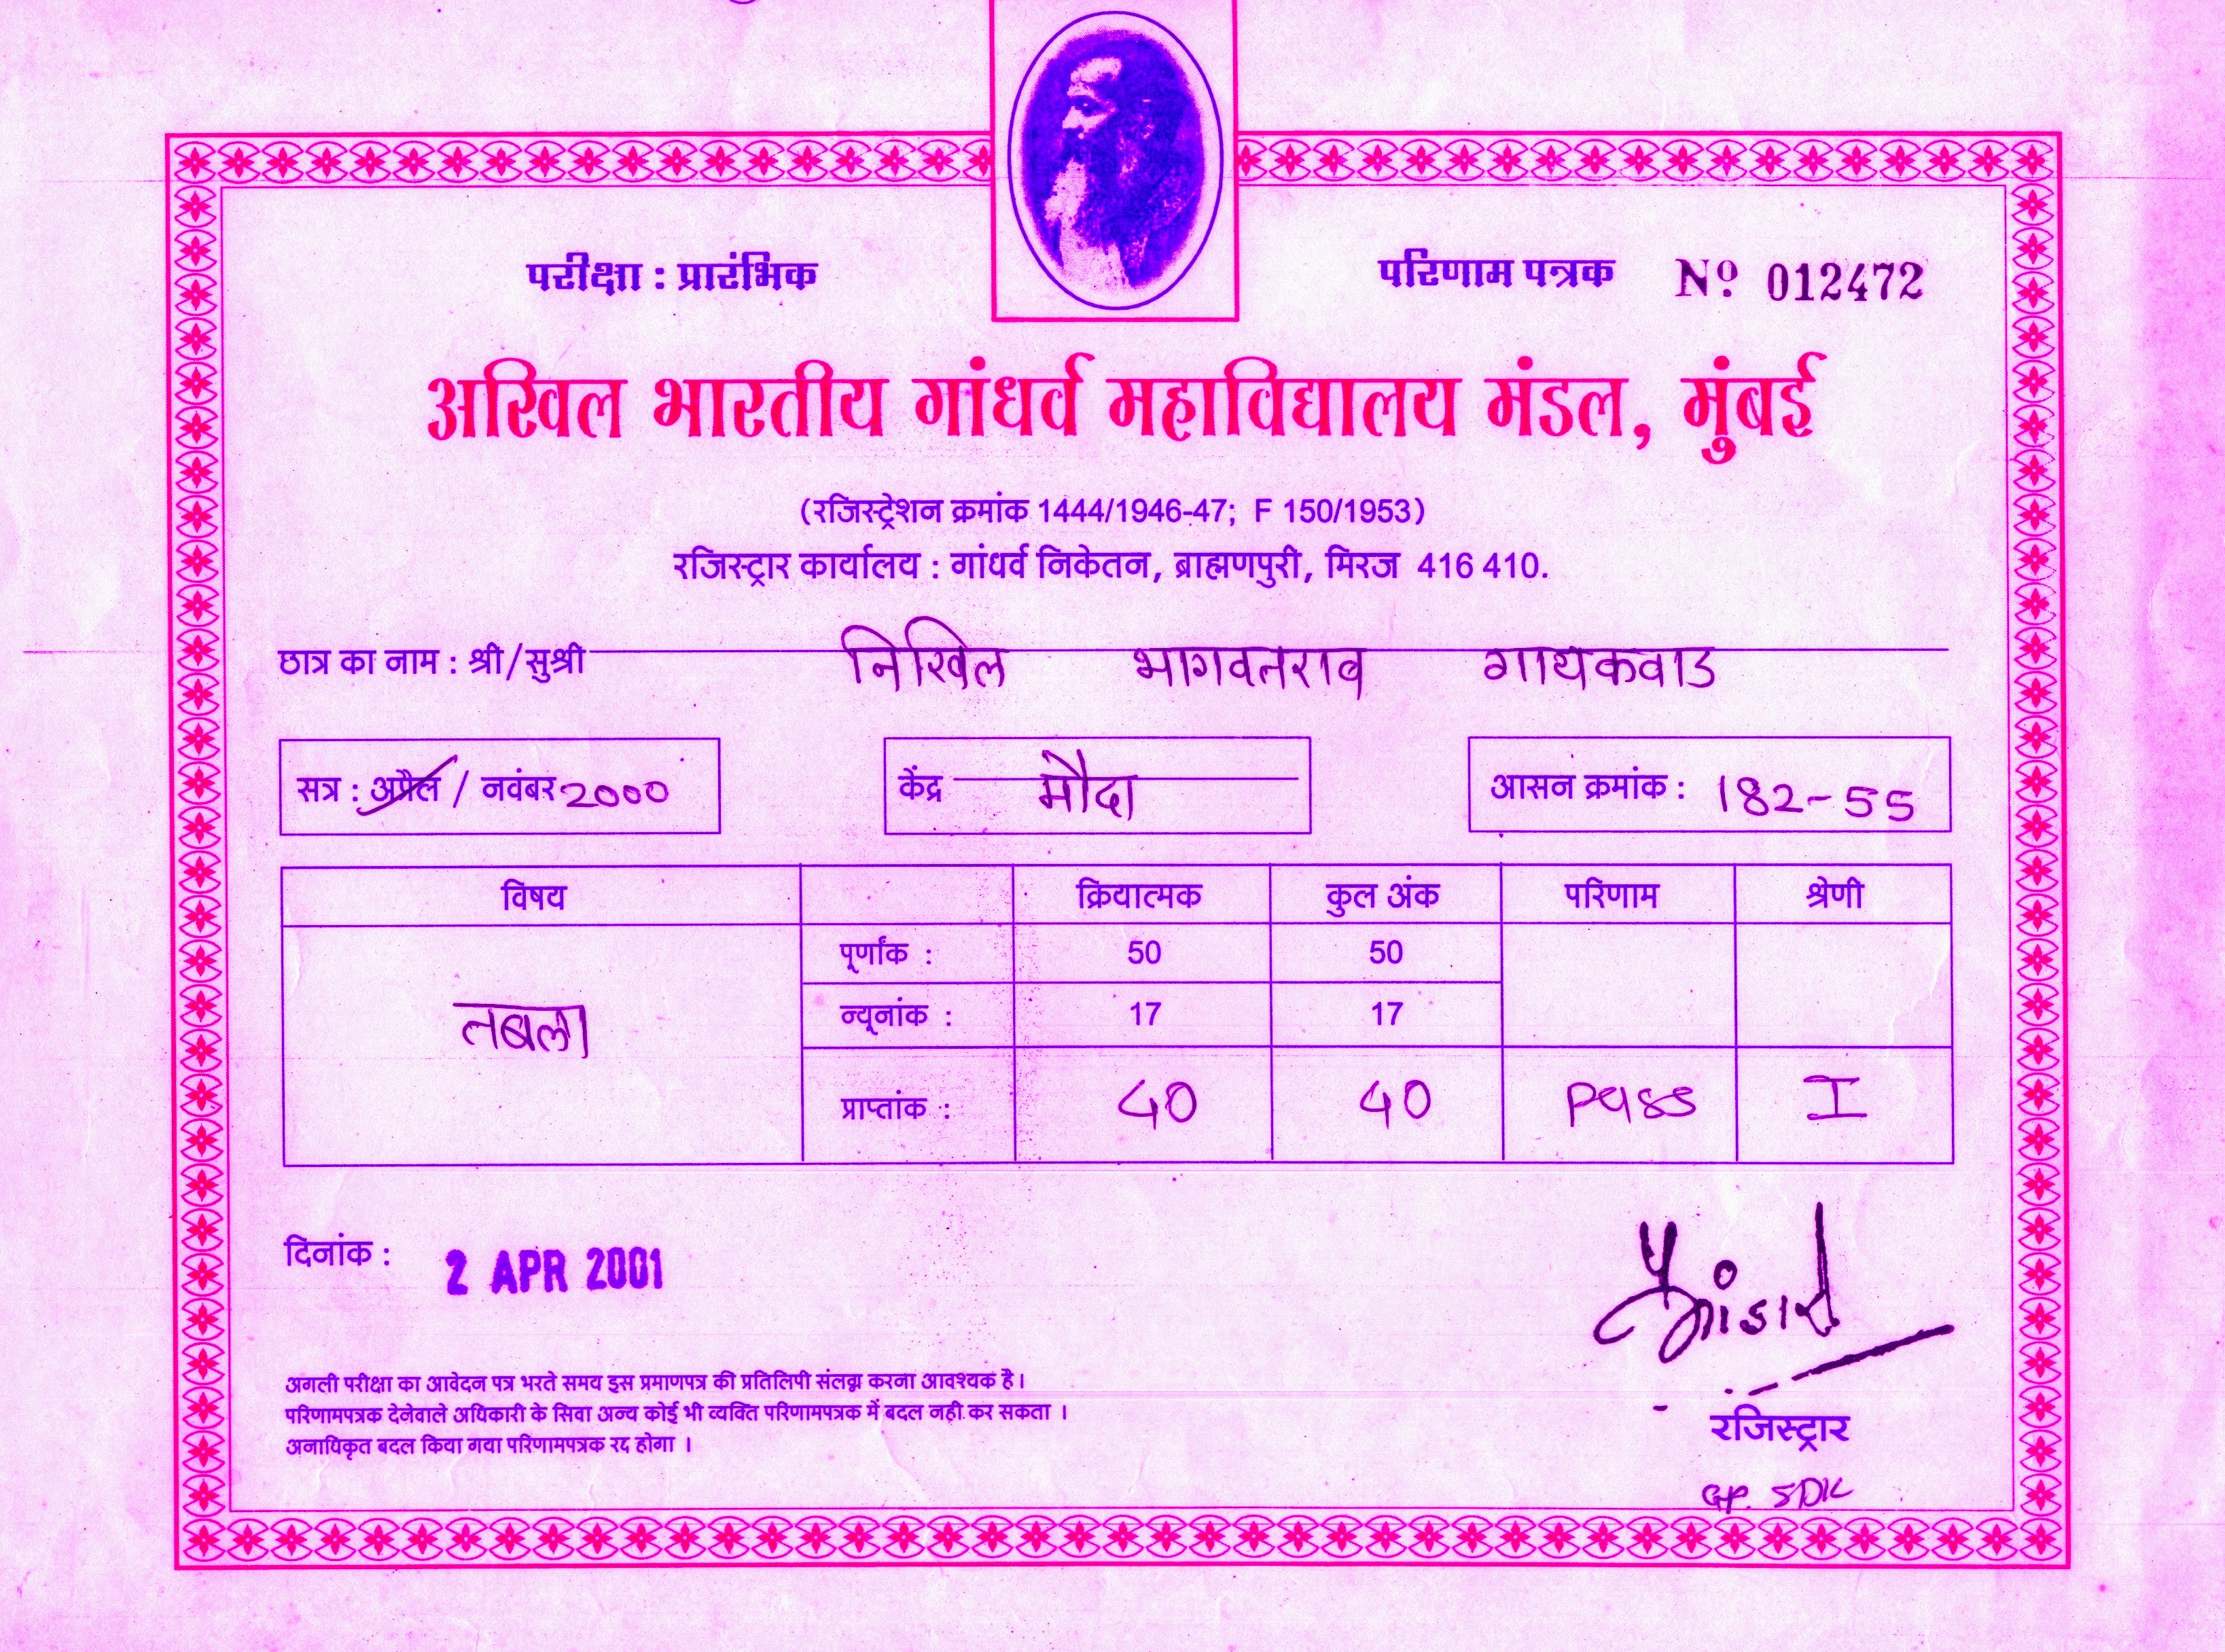 परीक्षा : प्रारंभिक
परिणाम पत्रक Nº 012472
अखिल भारतीय गांधर्व महाविद्यालय मंडल, मुंबई
(रजिस्ट्रेशन क्रमांक 1444/1946-47; F 150/1953)
रजिस्ट्रार कार्यालय : गांधर्व निकेतन, ब्राह्मणपुरी, मिरज 416 410.
छात्र का नाम : श्री/सुश्री निखिल भागवतराव गायकवाड
सत्र : अप्रैल / नवंबर 2000
केंद्र मौदा
आसन क्रमांक : 182-55
विषय क्रियात्मक कुल अंक परिणाम श्रेणी
पूर्णांक : 50 50
न्यूनांक : 17 17
तबला
प्राप्तांक : 40 40 Pass I
दिनांक : 2 APR 2001
अगली परीक्षा का आवेदन पत्र भरते समय इस प्रमाणपत्र की प्रतिलिपी संलग्न करना आवश्यक है।
परिणामपत्रक देनेवाले अधिकारी के सिवा अन्य कोई भी व्यक्ति परिणामपत्रक में बदल नही कर सकता ।
अनाधिकृत बदल किया गया परिणामपत्रक रद्द होगा ।
रजिस्ट्रार